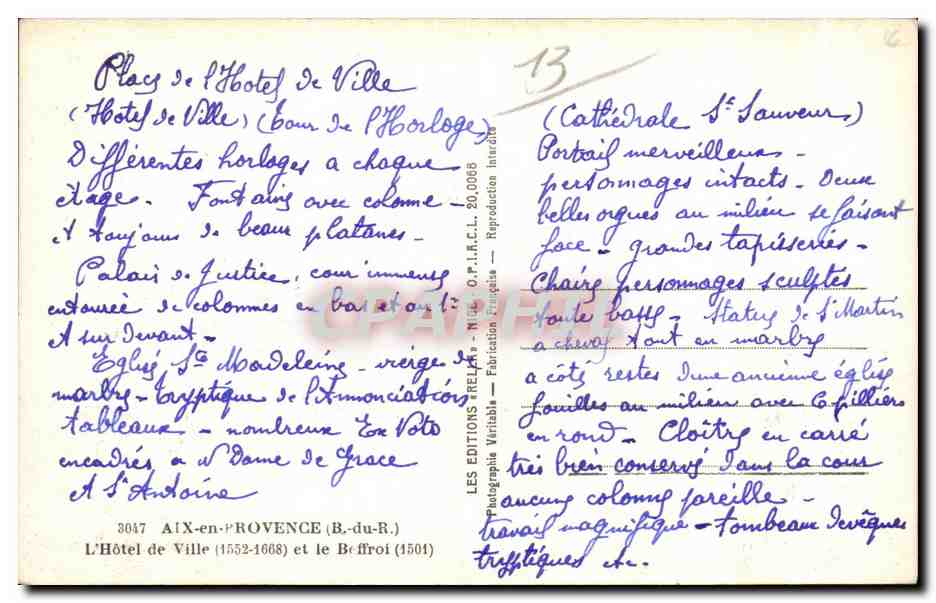 Place de l'Hotel de Ville
(Hotel de Ville) (tour de l'Horloge)
Différentes horloges a chaque
étage. Fontaine avec colonne -
et toujours de beaux platanes -
Palais de Justice, cour immense
entourée de colonnes en bas et au 1er
et sur devant -
Eglise Ste Madeleine - vierge de
marbre - tryptique de l'Annonciation
tableaux - nombreux Ex Voto
encadrés a N Dame de Grace
et St Antoine
3047 AIX-en-PROVENCE (B.-du-R.)
L'Hôtel de Ville (1552-1668) et le Beffroi (1501)
LES EDITIONS "RELLA" - NICE O.P.I.A.C.L. 20,0068
Photographie Véritable — Fabrication Française — Reproduction Interdite
CPARAMA
13
(Cathédrale St Sauveur)
Portail merveilleux -
personnages intacts - Deux
belles orgues au milieu se faisant
face - grandes tapisseries -
Chaire personnages sculptés
toute basse - Statue de St Martin
a cheval tout en marbre
a côté restes d'une ancienne église
fouilles au milieu avec 6 pilliers
en rond - Cloître en carré
très bien conservé dans la cour
aucune colonne pareille -
travail magnifique - tombeaux d'evêques
tryptiques etc.